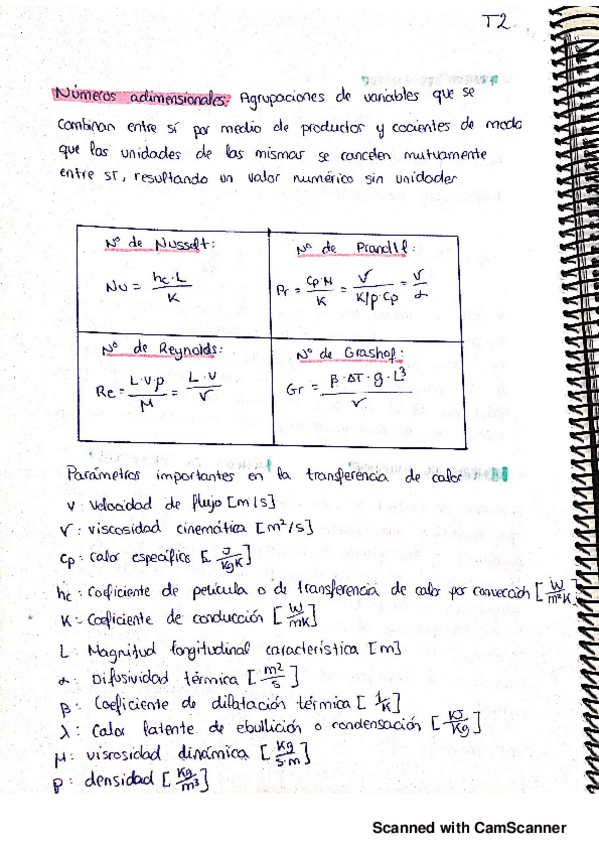 T2
Números adimensionales: Agrupaciones de variables que se
combinan entre sí por medio de productos y cocientes de modo
que las unidades de las mismas se cancelen mutuamente
entre sí, resultando un valor numérico sin unidades
Nº de Nusselt:
Nu = hc·L / K
Nº de Prandtl:
Pr = Cp·μ / K = ν / K/ρ·Cp = ν / α
Nº de Reynolds:
Re = L·v·ρ / μ = L·v / ν
Nº de Grashof:
Gr = β·ΔT·g·L³ / ν
Parámetros importantes en la transferencia de calor:
v: Velocidad de flujo [m/s]
ν: viscosidad cinemática [m²/s]
Cp: calor específico [J/KgK]
hc: Coeficiente de película o de transferencia de calor por convección [W/m²K]
K: Coeficiente de conducción [W/mK]
L: Magnitud longitudinal característica [m]
α: Difusividad térmica [m²/s]
β: Coeficiente de dilatación térmica [1/K]
λ: Calor latente de ebullición o condensación [KJ/Kg]
μ: viscosidad dinámica [Kg/s·m]
ρ: densidad [Kg/m³]
Scanned with CamScanner